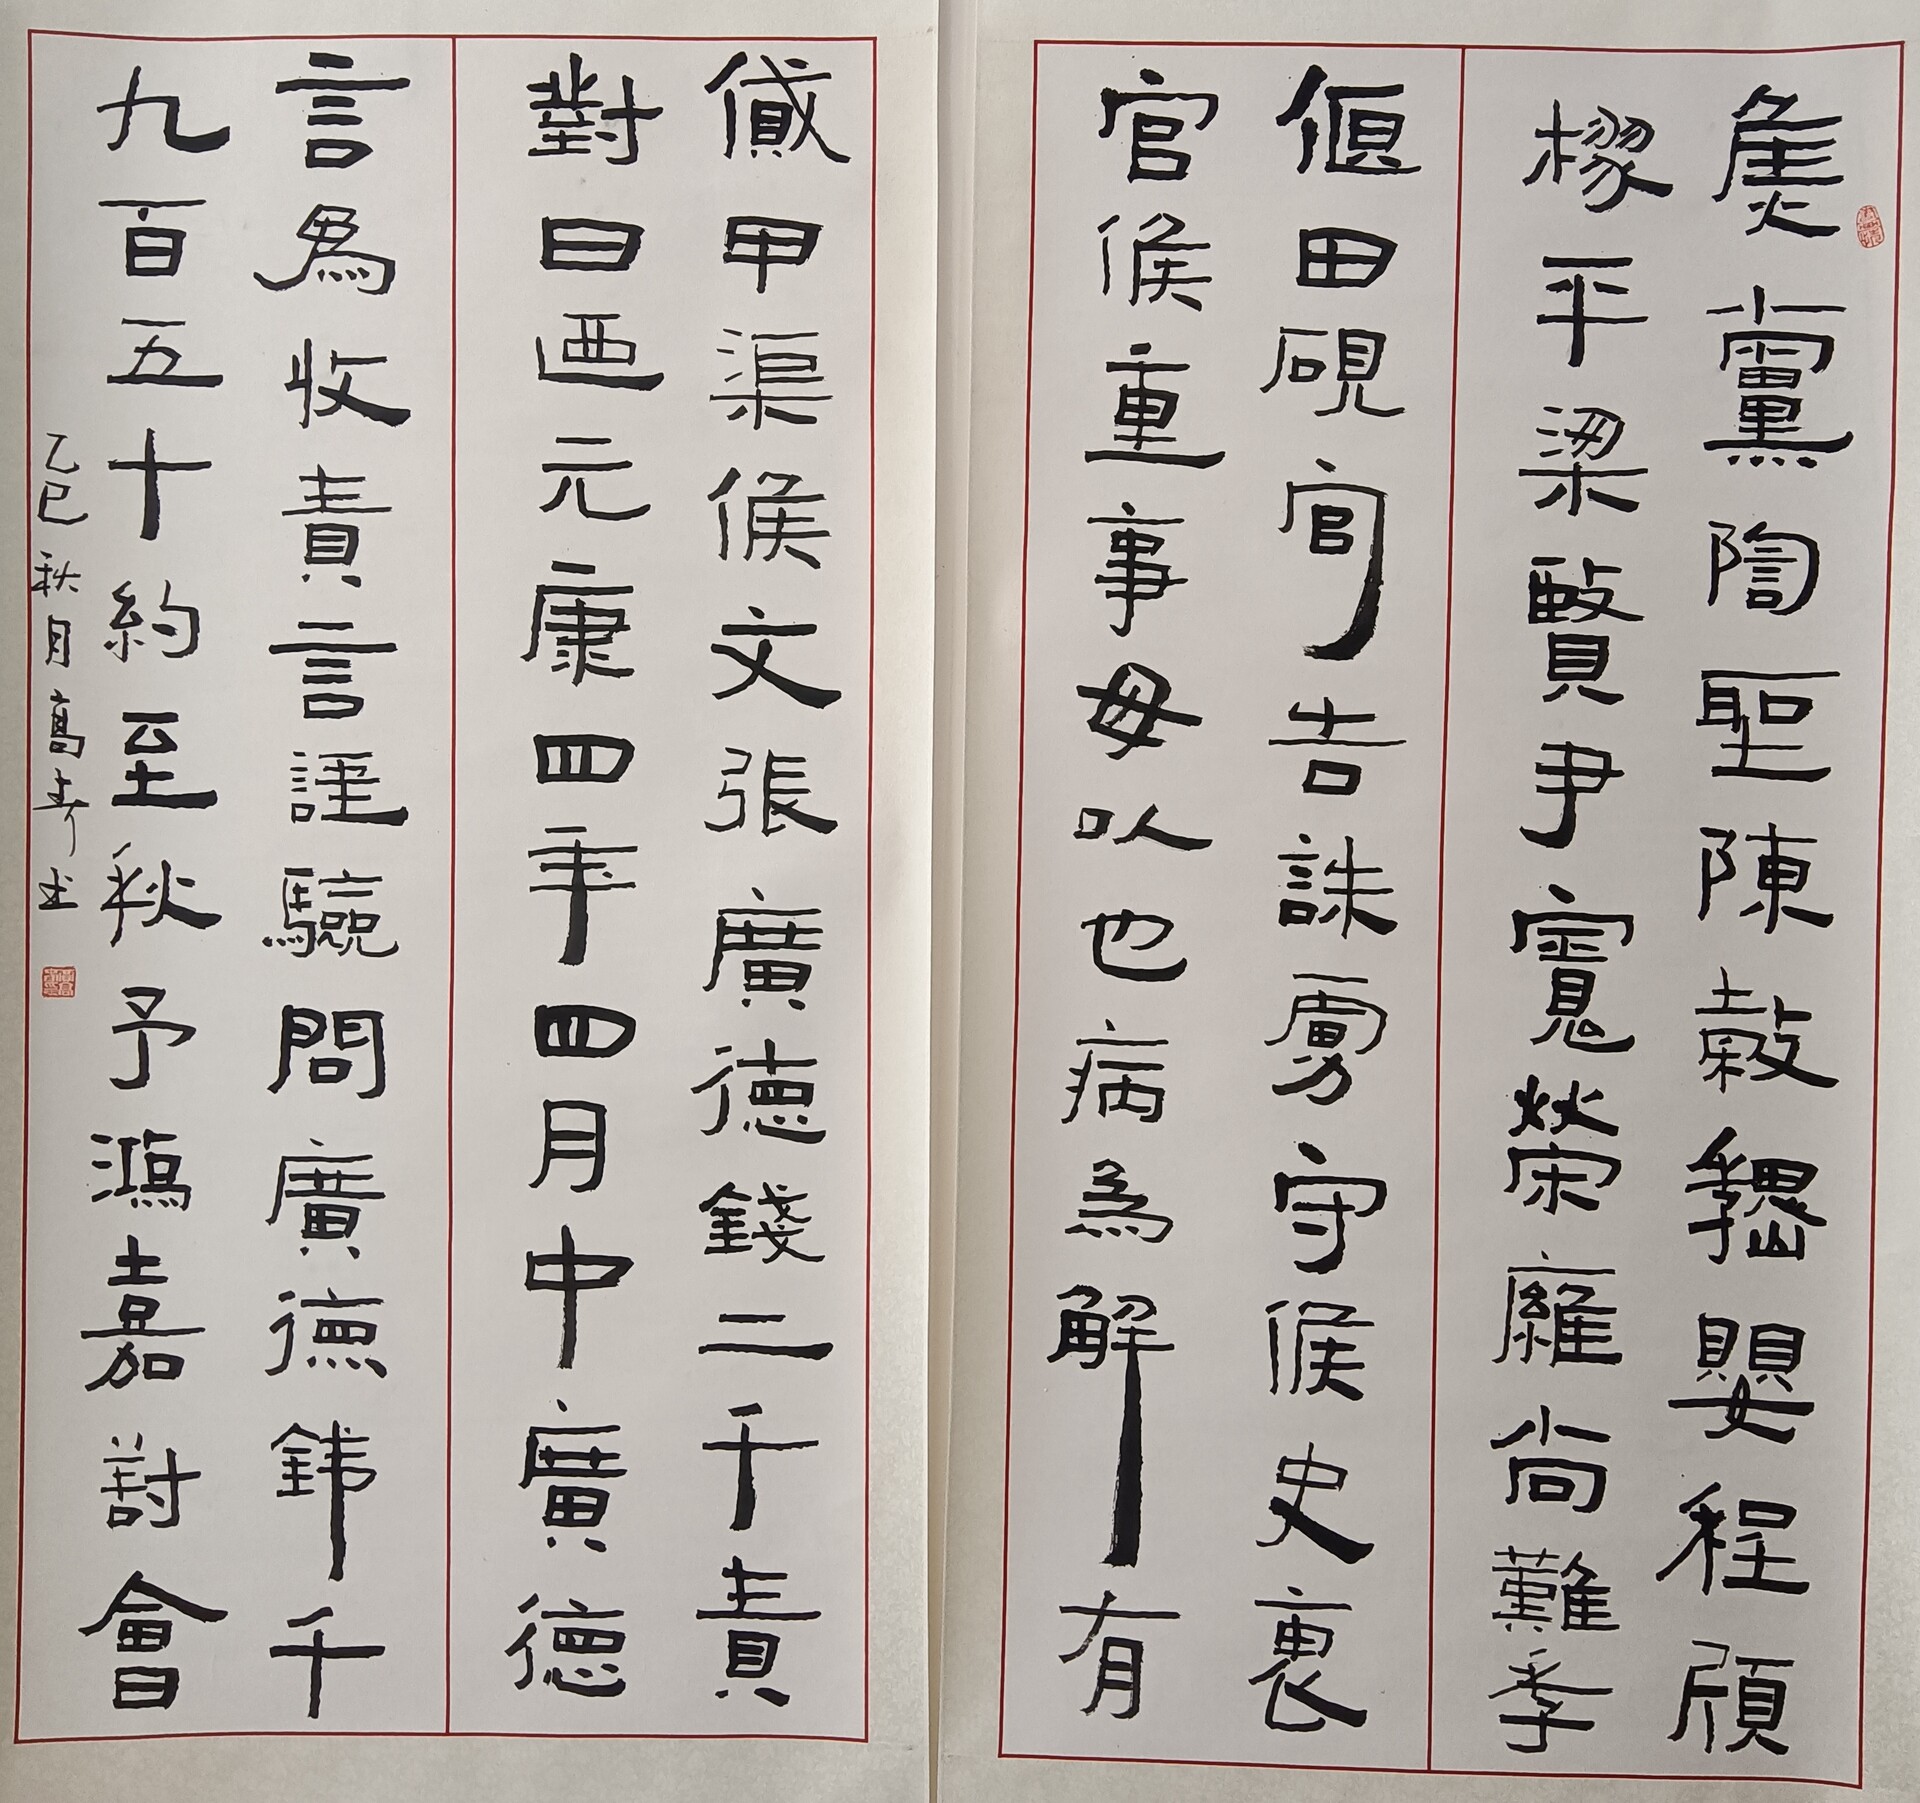 焦黨陶聖陳穀魏嬰程
樛平梁賢尹寬榮尚難季
偃田硯官告誅虜守候史褱
官候重事毋以也病為解有
貸甲渠候文張廣德錢二千責
對曰迺元康四年四月中廣德
言為收責言謹驗問廣德錢千
九百五十約至秋予鴻嘉對會
乙巳秋月高壽書